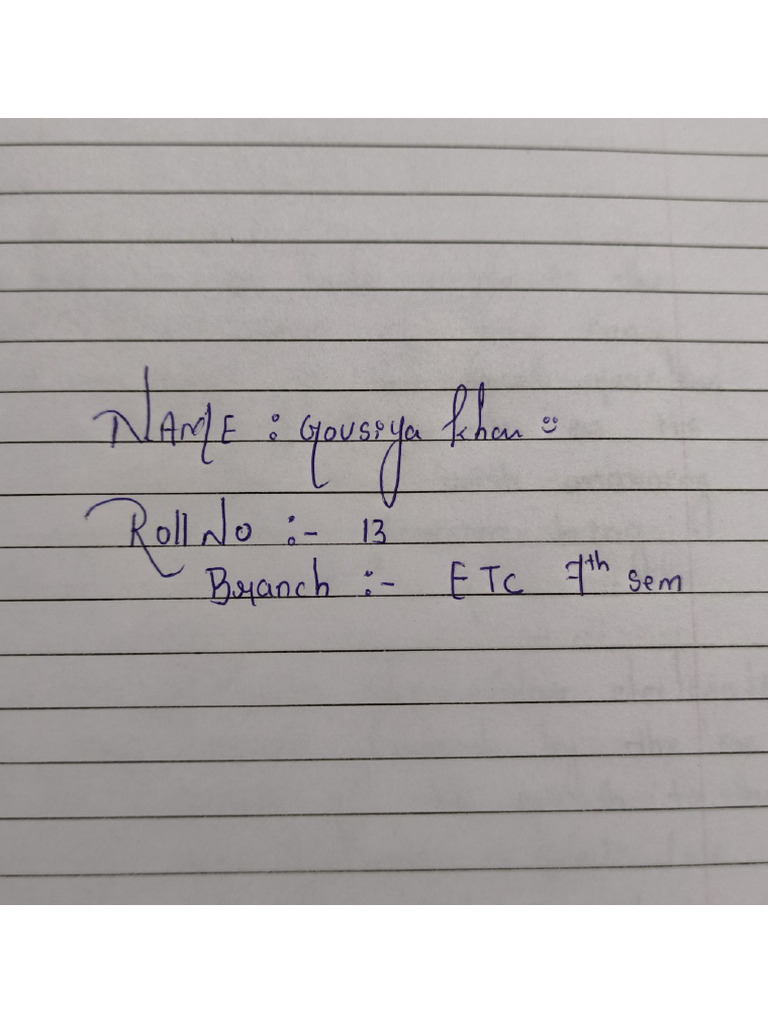 NAME : Gousiya Khan ☺
Roll No :- 13
Branch :- ETC 7th sem